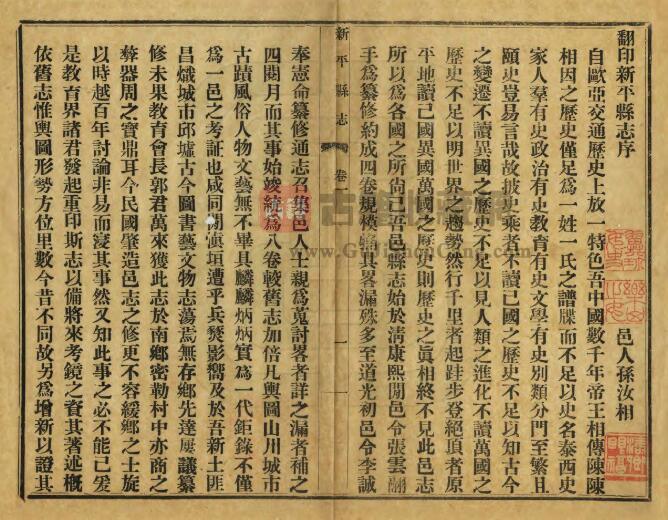 翻印新平縣志序
邑人孫汝相
自歐亞交通歷史上放一特色吾中國數千年帝王相傳陳陳
相因之歷史僅足爲一姓一氏之譜牒而不足以史名泰西史
家人羣有史政治有史教育有史文學有史別類分門至繁且
頤史豈易言哉故披史乘者不讀己國之歷史不足以知古今
之變遷不讀異國之歷史不足以見人類之進化不讀萬國之
歷史不足以明世界之趨勢然行千里者起跬步登絕頂者原
平地讀己國異國萬國之歷史則歷史之眞相終不見此邑志
所以爲各國之所尙已吾邑縣志始於淸康熙間邑令張雲翮
手爲纂修約成四卷規模畧具畧漏殊多至道光初邑令李誠
新平縣志
卷一
一
奉憲命纂修通志召集邑人士親爲蒐討畧者詳之漏者補之
四閱月而其事始竣統爲八卷較舊志加倍凡輿圖山川城市
古蹟風俗人物文藝無不畢具麟麟炳炳實爲一代鉅錄不僅
爲一邑之考証也咸同間滇垣遭乎兵燹影嚮及於吾新土匪
昌熾城市邱墟古今圖書藝文物志蕩焉無存鄉先達屢議纂
修未果教育會長郭君萬來獲此志於南鄉密勒村中亦商之
彜器周之寶鼎耳今民國肇造邑志之修更不容緩鄉之士旋
以時越百年討論非易而寢其事然又知此事之必不能已爰
是教育界諸君發起重印斯志以備將來考鏡之資其著述槪
依舊志惟輿圖形勢方位里數今昔不同故另爲增新以證其
古籍收藏家
www.GuJiShouCang.Com